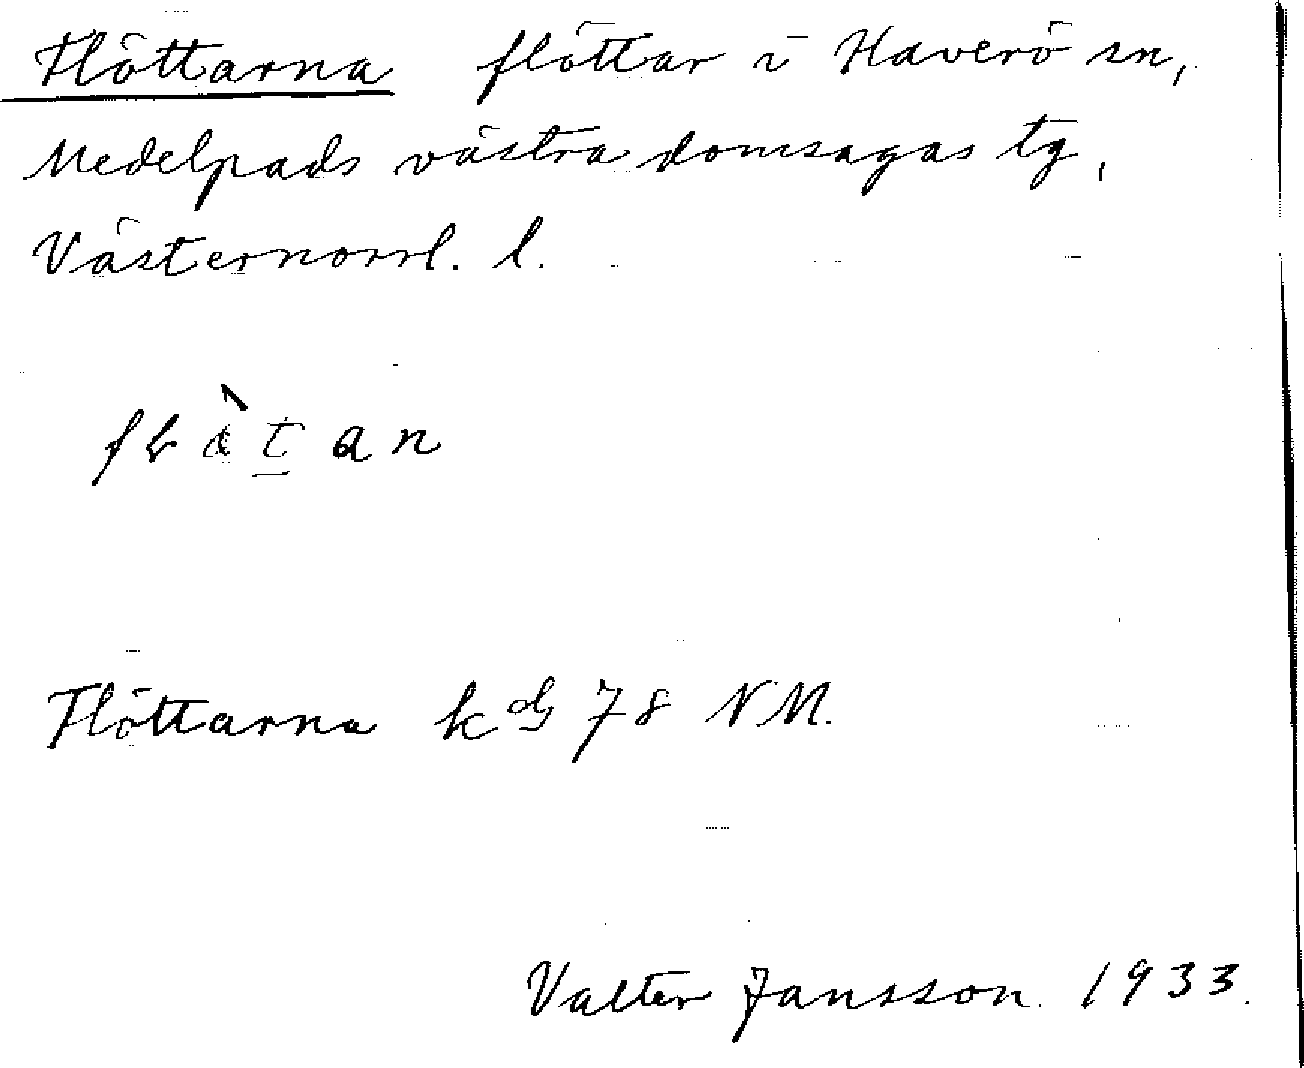 Flöttarna flöttar i Haverö sn,
Medelpads västra domsagas tg,
Västernorrl. l.
Flöttarna 78 NM.
Valter Jansson. 1933.